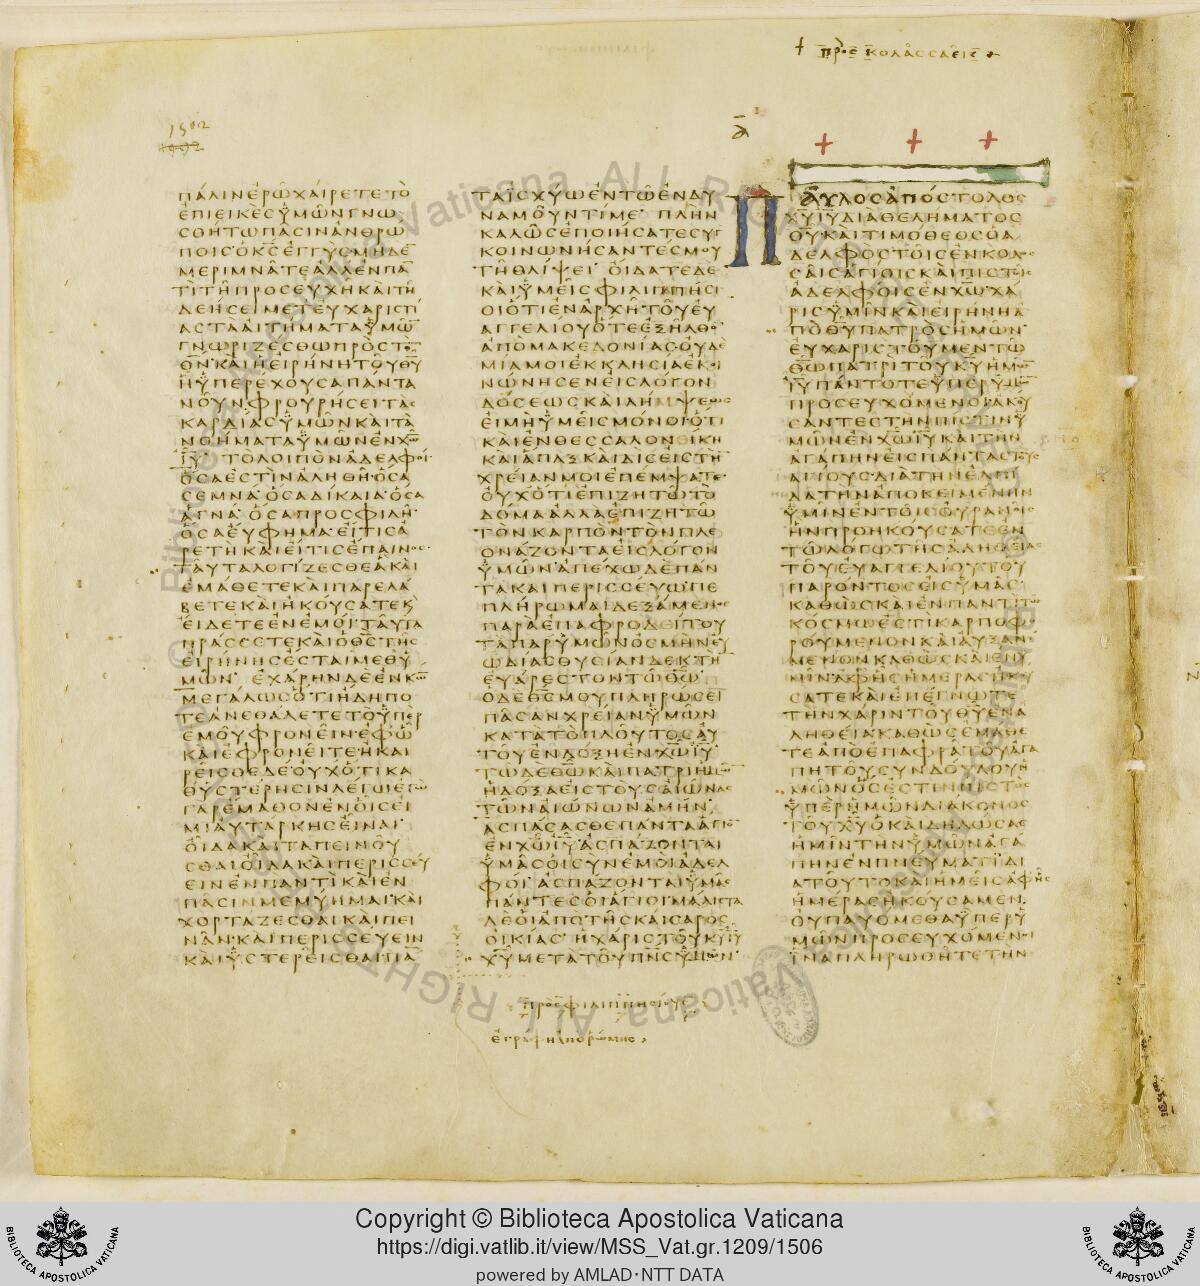 † προς κολασσαεις
1502
α
παλινερωχαιρετετο
επιεικεσϋμωνγνω
σθητωπασινανθρω
ποισοκσεγγυσμηδε
μεριμνατεαλλενπα
τιτηπροσευχηκαιτη
δεησειμετευχαριστι
ασταаιτηματαϋμω
γνωριζεσθωπροστο
θνκαιηειρηνητουθυ
ηϋπερεχουσαπαντα
νουνφρουρησειτας
καρδιασϋμωνκαιτα
νοηματαϋμωνενχω
ιυ τολοιποναδελφοι
οσαεστιναληθηοσα
σεμναοσαδικαιαοσα
αγναοσαπροσφιλη
οσαευφημαειτισα
ρετηκαιειτισεπαινος
ταυταλογιζεσθεακαι
εμαθετεκαιπαρελα
βετεκαιηκουσατεκ
ειδετεενεμοιταυτα
πρασσετεκαιοθστης
ειρηνησεσταιμεθϋ
μων εχαρηνδεενκω
μεγαλωσοτιηδηπο
τεανεθαλετετοϋπερ
εμουφρονεινεφω
καιεφρονειτεηκαι
ρεισθεδεουχοτικα
θυστερησινλεγωεγω
γαρεμαθονενοισει
μιαυταρκησειναι
οιδακαιταπεινου
σθαιοιδακαιπερισσευ
εινενπαντικαιεν
πασινμεμυημαικαι
χορταζεσθαικαιπει
νανκαιπερισσευειν
καιϋστερεισθαιπα
ταισχυωεντωενδυ
ναμουντιμε πλην
καλωσεποιησατεσυγ
κοινωνησαντεσμου
τηθλιψει οιδατεδε
καιϋμεισφιλιππησι
οιοτιεναρχητουευ
αγγελιουοτεεξηλθο
απομακεδονιασουδε
μιαμοιεκκλησιαεκοι
νωνησενεισλογον
δοσεωσκαιλημψεως
ειμηϋμεισμονοιοτι
καιενθεσσαλονικη
καιαπαξκαιδισειστη
χρειανμοιεπεμψατε
ουχοτιεπιζητωτο
δομααλλαεπιζητω
τονκαρποντονπλε
οναζονταεισλογον
ϋμωναπεχωδεπαν
τακαιπερισσευωπε
πληρωμαιδεξαμενος
παραεπαφροδειτου
ταπαρϋμωνοσμηνευ
ωδιασθυσιανδεκτη
ευαρεστοντωθω
οδεθσμουπληρωσει
πασανχρειανϋμων
κατατοπλουτοσαυ
τουενδοξηενχωιυ
τωδεθωκαιπατριημω
ηδοξαειστουσαιωνας
τωναιωνωναμην
ασπασασθεπαντααγιο
ενχωιυασπαζονται
ϋμασοισυνεμοιαδελ
φοι ασπαζονταιϋμας
παντεσοιαγιοιμαλιστα
δεοιαποτησκαισαρος
οικιας ηχαριστουκυιυ
χυμετατουπνσϋμων
προς φιλιππησιους
εγραφη απο ρωμης
παυλοσαποστολος
χυιυδιαθεληματος
θυκαιτιμοθεοσοα
δελφοστοισενκολοσ
σαισαγιοισκαιπιστοι
αδελφοισενχωχα
ρισϋμινκαιειρηνηα
ποθυπατροσημων
ευχαριστουμεντω
θωπατριτουκυημω
ιυπαντοτεϋπερϋμω
προσευχομενοιακου
σαντεστηνπιστινϋ
μωνενχωιυκαιτην
αγαπηνεισπανταστους
αγιουσδιατηνελπι
δατηναποκειμενην
ϋμινεντοισουρανοις
ηνπροηκουσατεεν
τωλογωτησαληθειας
τουευαγγελιουτου
παροντοσεισϋμας
καθωσκαιενπαντιτω
κοσμωεστικαρποφο
ρουμενονκαιαυξαν
μενονκαθωσκαιενυ
μιναφησημερασηκου
σατεκαιεπεγνωτε
τηνχαριντουθυενα
ληθειακαθωσεμαθε
τεαποεπαφρατουαγα
πητουσυνδουλουη
μωνοσεστινπιστος
ϋπερημωνδιακονος
τουχυοκαιδηλωσας
ημιντηνϋμωναγα
πηνενπνευματιδι
ατουτοκαιημεισαφης
ημερασηκουσαμεν
ουπαυομεθαϋπερϋ
μωνπροσευχομενοι
ιναπληρωθητετην
Copyright © Biblioteca Apostolica Vaticana
https://digi.vatlib.it/view/MSS_Vat.gr.1209/1506
powered by AMLAD·NTT DATA
BIBLIOTECA APOSTOLICA VATICANA
BIBLIOTECA APOSTOLICA VATICANA